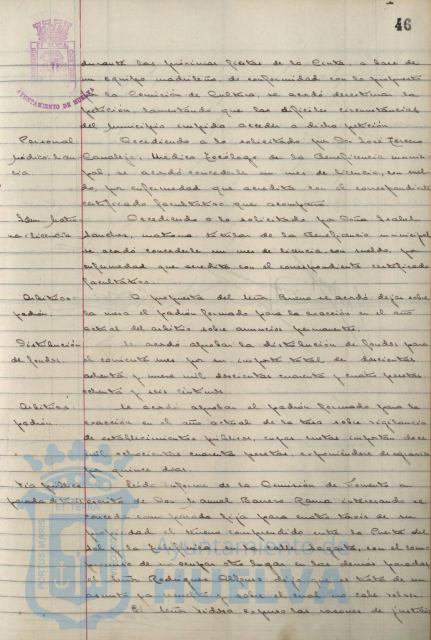 46
AYUNTAMIENTO DE HUELVA
durante las próximas fiestas de la Cinta, a base de
un equipo madrileño, de conformidad con lo propuesto
por la Comisión de Cultura, se acordó desestimar la
petición, lamentando que las difíciles circunstancias
del Municipio impida acceder a dicha petición
Personal
Médico licencia
Accediendo a lo solicitado por Don José
Médico Tocólogo de la Beneficencia municipal,
se acordó concederle un mes de licencia, con sueldo,
por enfermedad que acredita con el correspondiente
certificado facultativo que acompaña.
Idem Matrona licencia
Accediendo a lo solicitado por Doña Isabel
Sánchez, matrona titular de la Beneficencia municipal
se acordó concederle un mes de licencia, con sueldo, por
enfermedad que acredita con el correspondiente certificado
facultativo.
Arbitrios
padrón.
A propuesta del señor Bueno se acordó dejar sobre
la mesa el padrón formado para la exacción en el año
actual del arbitrio sobre anuncios permanentes.
Distribución
de fondos.
Se acordó aprobar la distribución de fondos para
el corriente mes por un importe total de doscientas
ochenta y nueve mil doscientas cuarenta y cuatro pesetas
ochenta y seis céntimos.
Arbitrios
padrón
Se acordó aprobar el padrón formado para la
exacción en el año actual de la tasa sobre vigilancia
de establecimientos públicos, cuyas cuotas importan doce
mil cuarenta pesetas, exponiéndose
por quince días.
Vía pública
parada de taxis
Leído informe de la Comisión de Fomento a
escrito de Don Manuel Romero Rama interesando se
conceda como parada fija para cuatro taxis de su
propiedad el comprendido entre la Puerta del
Sol y la calle Sagasta, con el compromiso
de no ocupar otro lugar en las demás paradas
el señor Rodríguez Alfonso dijo que se trata de un
asunto ya resuelto y sobre el cual no cabe
El señor Isidro expuso las razones de justicia
Ayuntamiento de
HUELVA